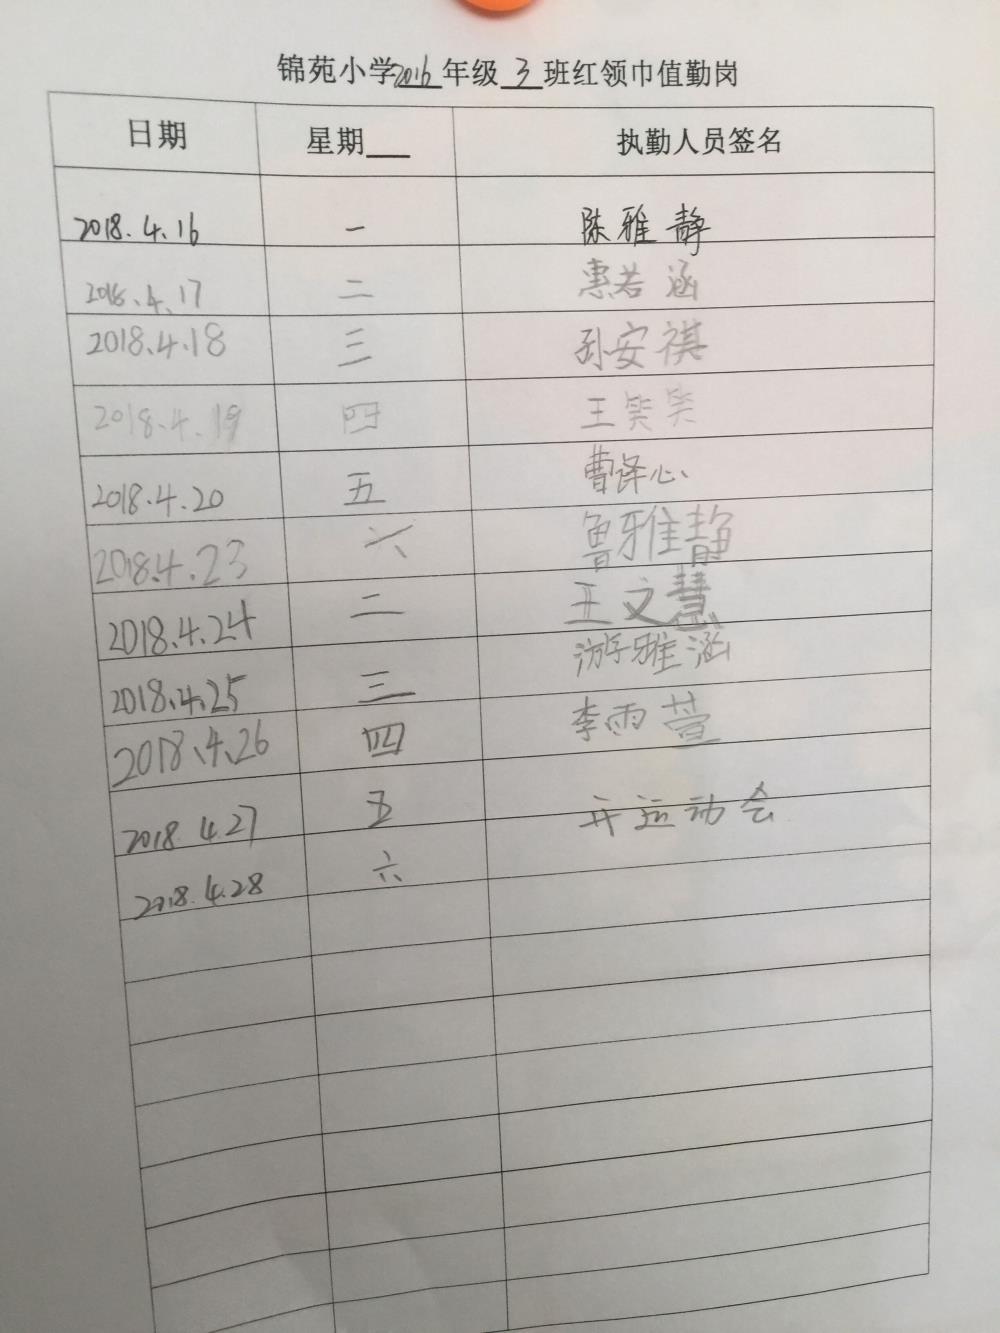 锦苑小学2016年级3班红领巾值勤岗
日期 星期 执勤人员签名
2018.4.16 一 陈雅静
2018.4.17 二 惠若涵
2018.4.18 三 孙安祺
2018.4.19 四 王笑笑
2018.4.20 五 曹译心
2018.4.23 六 鲁雅静
2018.4.24 二 王文慧
2018.4.25 三 游雅涵
2018.4.26 四 李雨萱
2018.4.27 五 开运动会
2018.4.28 六